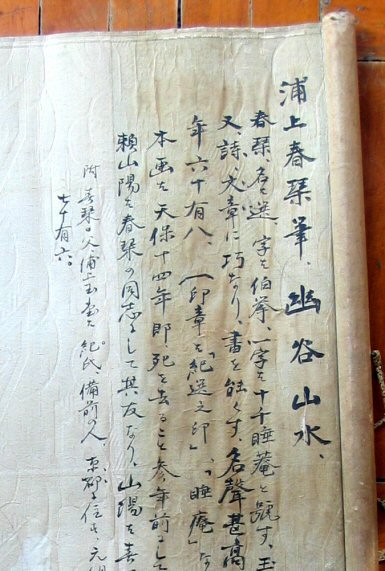 浦上春琴筆、幽谷山水、
春琴、名を選、字を伯挙、一字を十千、睡菴と號す、玉
又、詩、文章に巧なり、書を能くす、名聲甚高
年六十有八、(印章は「紀選之印」、「睡庵」な
本画は天保十四年即死を去ること参年前にして
頼山陽は春琴の同志にして其友なり、山陽を春
附 春琴の父、浦上玉堂は紀氏 備前の人、京都に住す、元
七十有六。